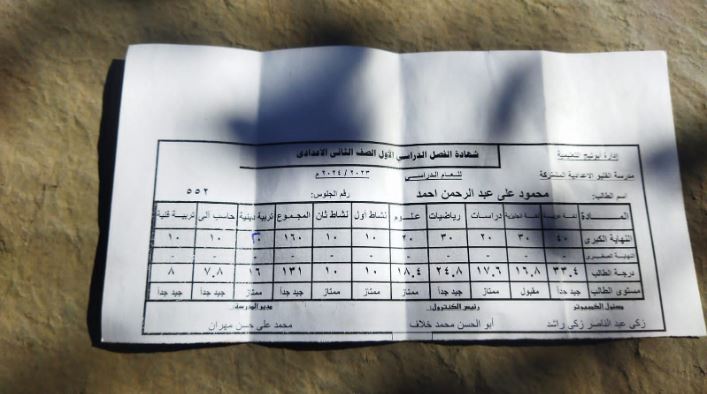 إدارة ابوتيج التعليمية
شهادة الفصل الدراسي الأول الصف الثانى الاعدادى
مدرسة الاعدادية المشتركة
للعام الدراسى ٢٠٢٣ / ٢٠٢٤ م
اسم الطالب: محمود على عبد الرحمن احمد رقم الجلوس: ٥٥٢
المــــادة لغة عربية لغة انجليزية دراسات رياضيات علـــوم نشاط أول نشاط ثان المجموع تربية دينية حاسب آلى تربيـة فنية
النهاية الكبرى ٤٠ ٣٠ ٢٠ ٣٠ ٢٠ ١٠ ١٠ ١٦٠ ٢٠ ١٠ ١٠
النهاية الصغرى - - - - - - - - - - -
درجة الطالب ٣٣,٤ ١٦,٨ ١٧,٦ ٢٤,٨ ١٨,٤ ١٠ ١٠ ١٣١ ١٦ ٧,٨ ٨
مستوى الطالب جيد جداً مقبول ممتاز جيد جداً ممتاز ممتاز ممتاز جيد جداً ممتاز جيد جداً جيد جداً
مسئول الكمبيوتر رئيس الكنترول: مدير المدرسة:
زكى عبد الناصر زكى راشد أبو الحسن محمد خلاف محمد على حسن مهران